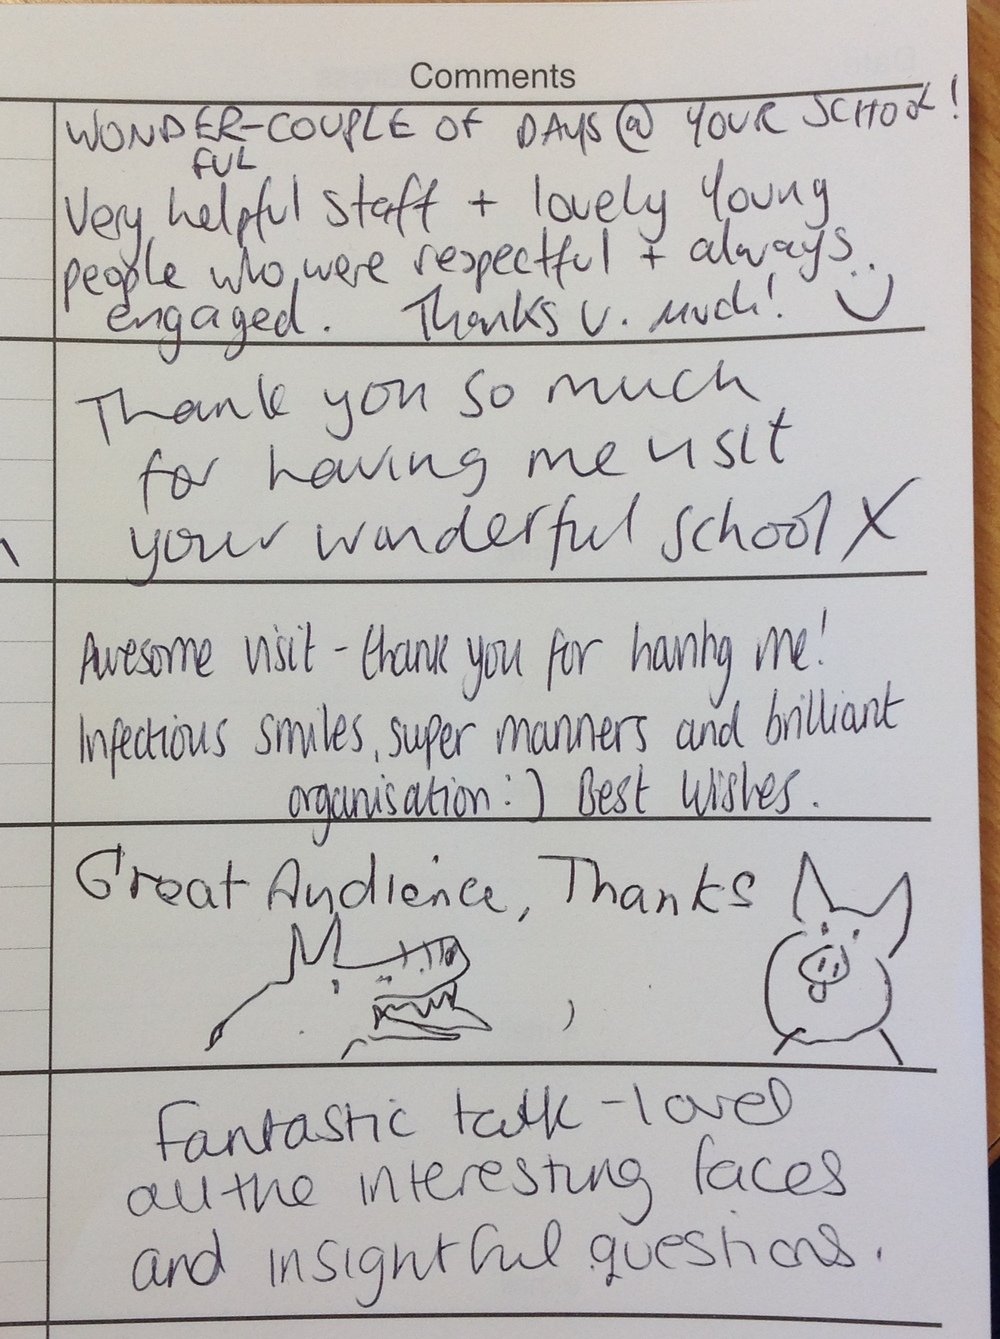 Comments
WONDER-COUPLE OF DAYS @ YOUR SCHOOL!
FUL
Very helpful staff + lovely young
people who were respectful + always
engaged. Thanks v. much!
Thank you so much
for having me visit
your wonderful school X
Awesome visit - thank you for having me!
Infectious smiles, super manners and brilliant
organisation :) Best Wishes.
Great Audience, Thanks
Fantastic talk - loved
all the interesting faces
and insightful questions.